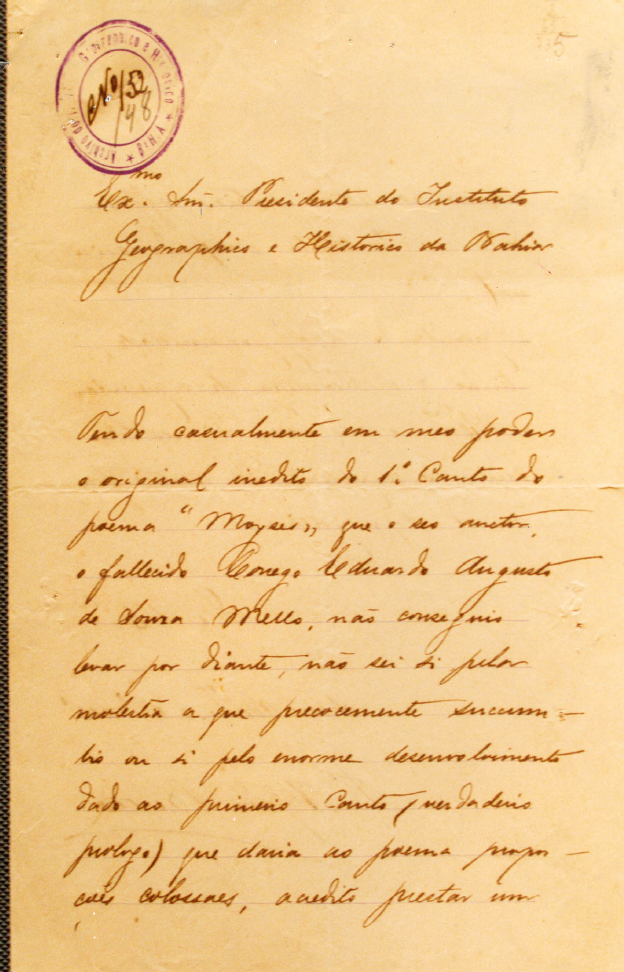 5
Geographico e Historico
Archivo do
No 152
/48
Exmo. Snr. Presidente do Instituto
Geographico e Historico da Bahia
Tendo casualmente em meo poder
o original inedito do 1.º Canto do
poema "Moysés", que o seo auctor,
o fallecido Conego Eduardo Augusto
de Souza Mello, não conseguio
levar por diante, não sei si pela
molestia a que precocemente succum-
bio ou si pelo enorme desenvolvimento
dado ao primeiro Canto (verdadeiro
prologo) que daria ao poema propor-
ções colossaes, acredito prestar um